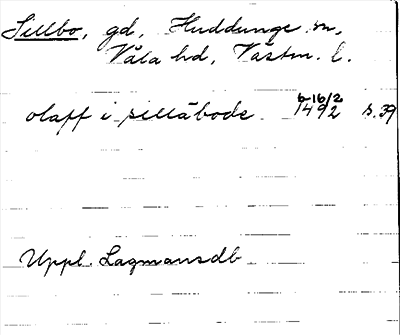 Sillbo, gd, Huddunge sn,
Våla hd, Västm. l.
6-16/2
olaff i sillabode 1492 s. 39
Uppl. Lagmansdb